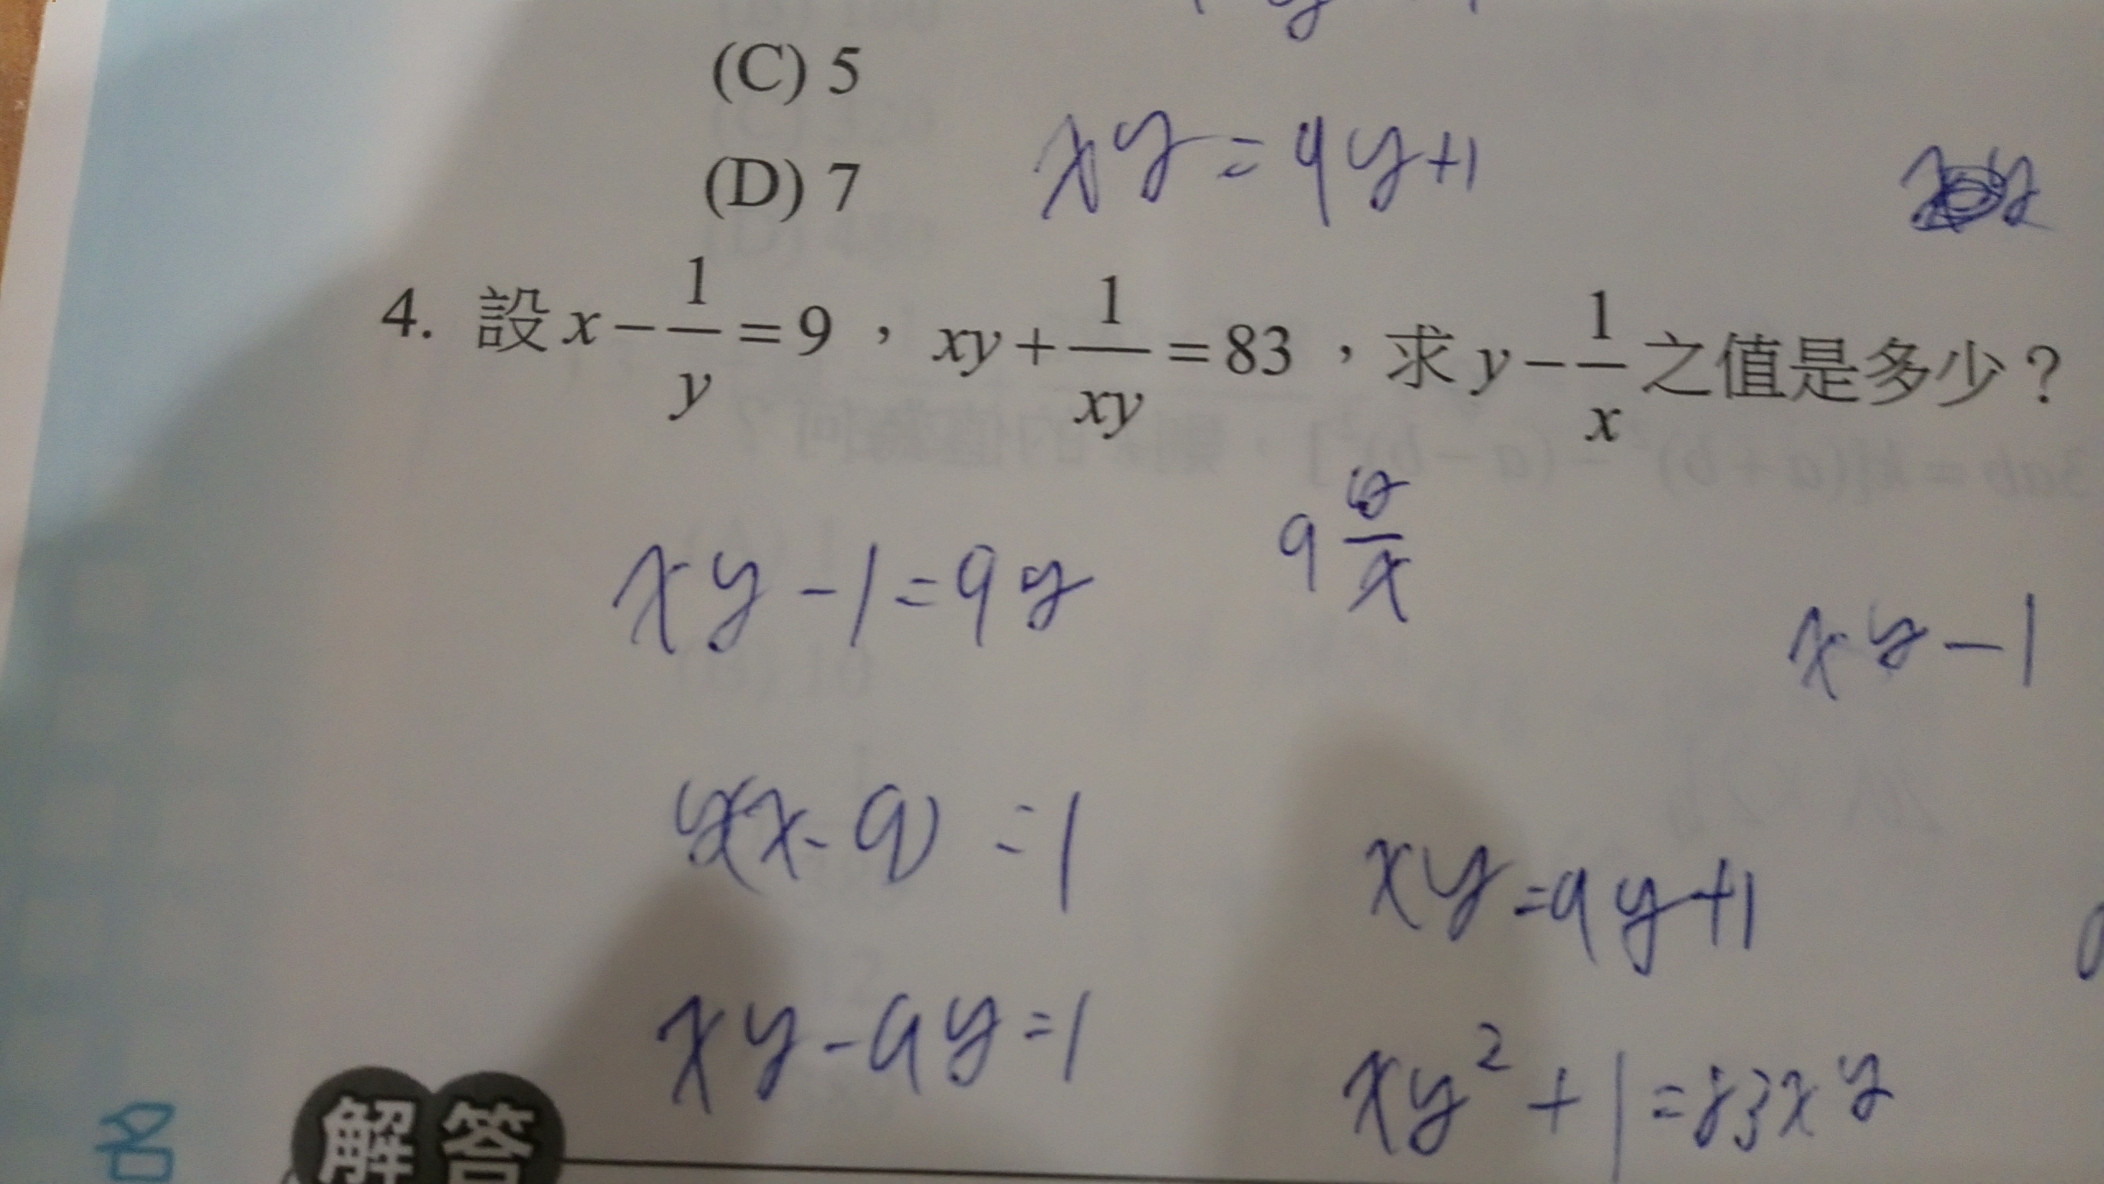 (C) 5
(D) 7
xy = 9y+1
4. 設 x − 1/y = 9，xy + 1/xy = 83，求 y − 1/x 之值是多少？
9 y/x
xy − 1 = 9y
xy − 1
y(x − 9) = 1
xy = 9y+1
xy − 9y = 1
xy² + 1 = 83xy
名
解答